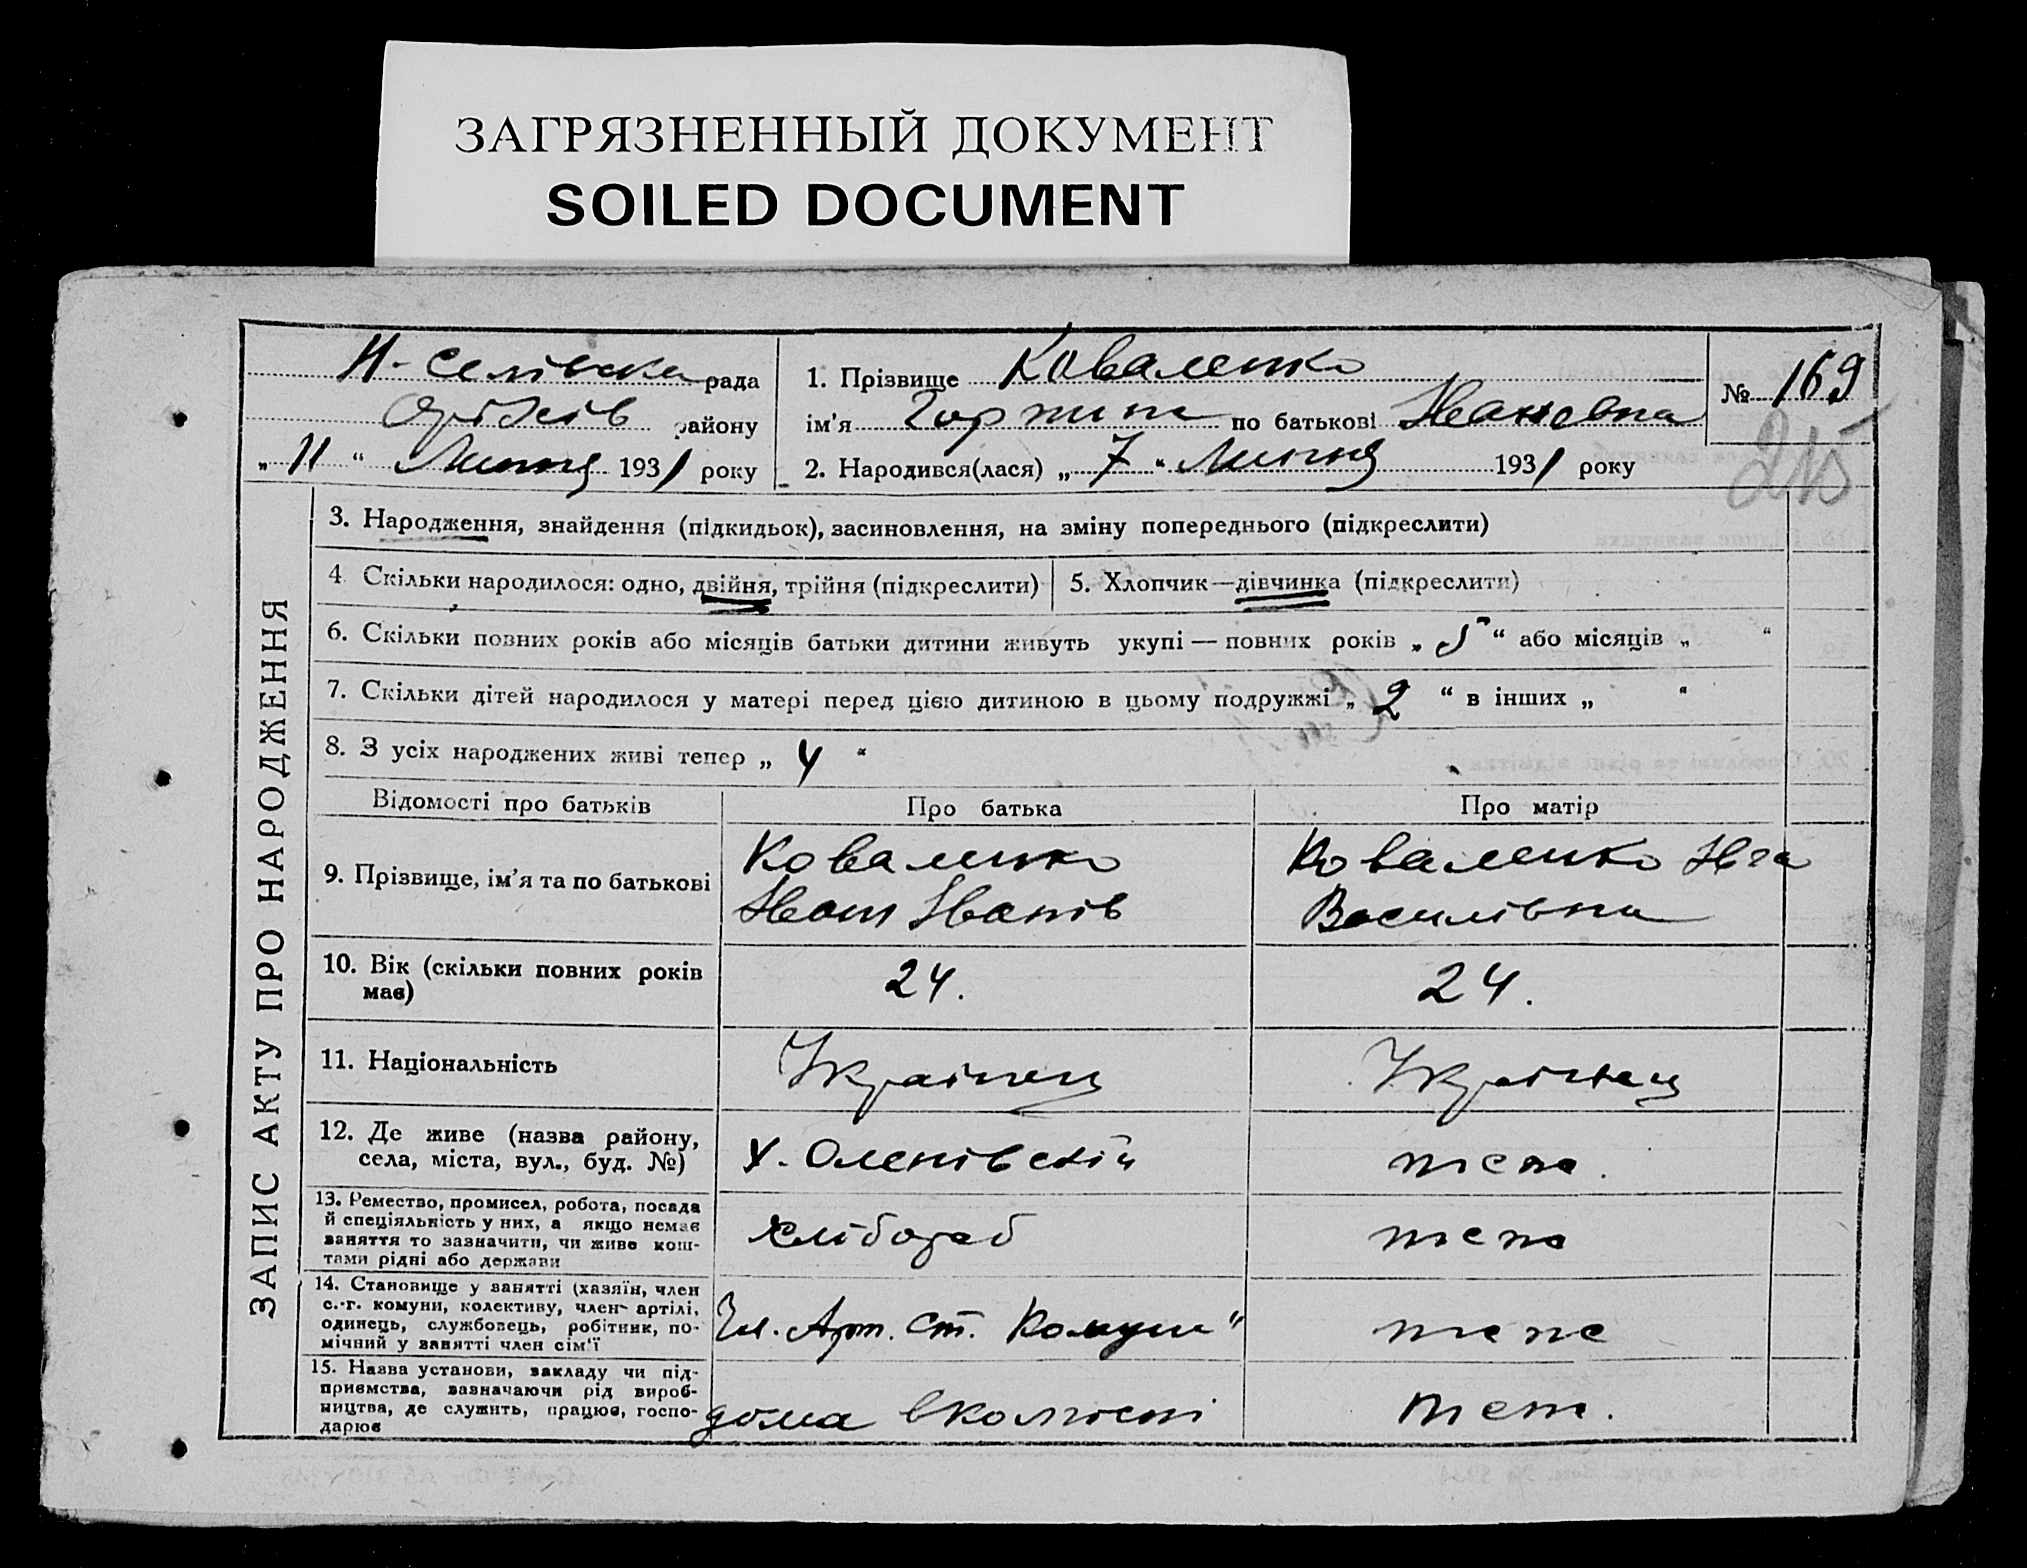 ЗАГРЯЗНЕННЫЙ ДОКУМЕНТ
SOILED DOCUMENT
Н-Селівска рада
Оріхів району
„ 11 “ Липня 1931 року
1. Прізвище Коваленко
ім’я Горпина по батькові Івановна
2. Народився(лася) „ 7 “ Липня 1931 року
№ 169
215
ЗАПИС АКТУ ПРО НАРОДЖЕННЯ
3. Народження, знайдення (підкидьок), засиновлення, на зміну попереднього (підкреслити)
4 Скільки народилося: одно, двійня, трійня (підкреслити)
5. Хлопчик—дівчинка (підкреслити)
6. Скільки повних років або місяців батьки дитини живуть укупі — повних років „ 5 “ або місяців „ “
7. Скільки дітей народилося у матері перед цією дитиною в цьому подружжі „ 2 “ в інших „ “
8. З усіх народжених живі тепер „ 4 “
Відомості про батьків
Про батька
Про матір
9. Прізвище, ім’я та по батькові
Коваленко
Іван Іванів
Коваленко
Василівна
10. Вік (скільки повних років
має)
24.
24.
11. Національність
Українец
Українец
12. Де живе (назва району,
села, міста, вул., буд. №)
х. Оленівский
теж.
13. Ремество, промисел, робота, посада
й спеціяльність у них, а якщо немає
заняття то зазначити, чи живе кош-
тами рідні або держави
хлібороб
теж
14. Становище у занятті (хазяїн, член
с.-г. комуни, колективу, член артілі,
одинець, службовець, робітник, по-
мічний у занятті член сім’ї
Чл. Арт. Ст. Комуни“
теж
15. Назва установи, закладу чи під-
приємства, зазначаючи рід вироб-
ництва, де служить, працює, госпо-
дарює
дома в
теж.